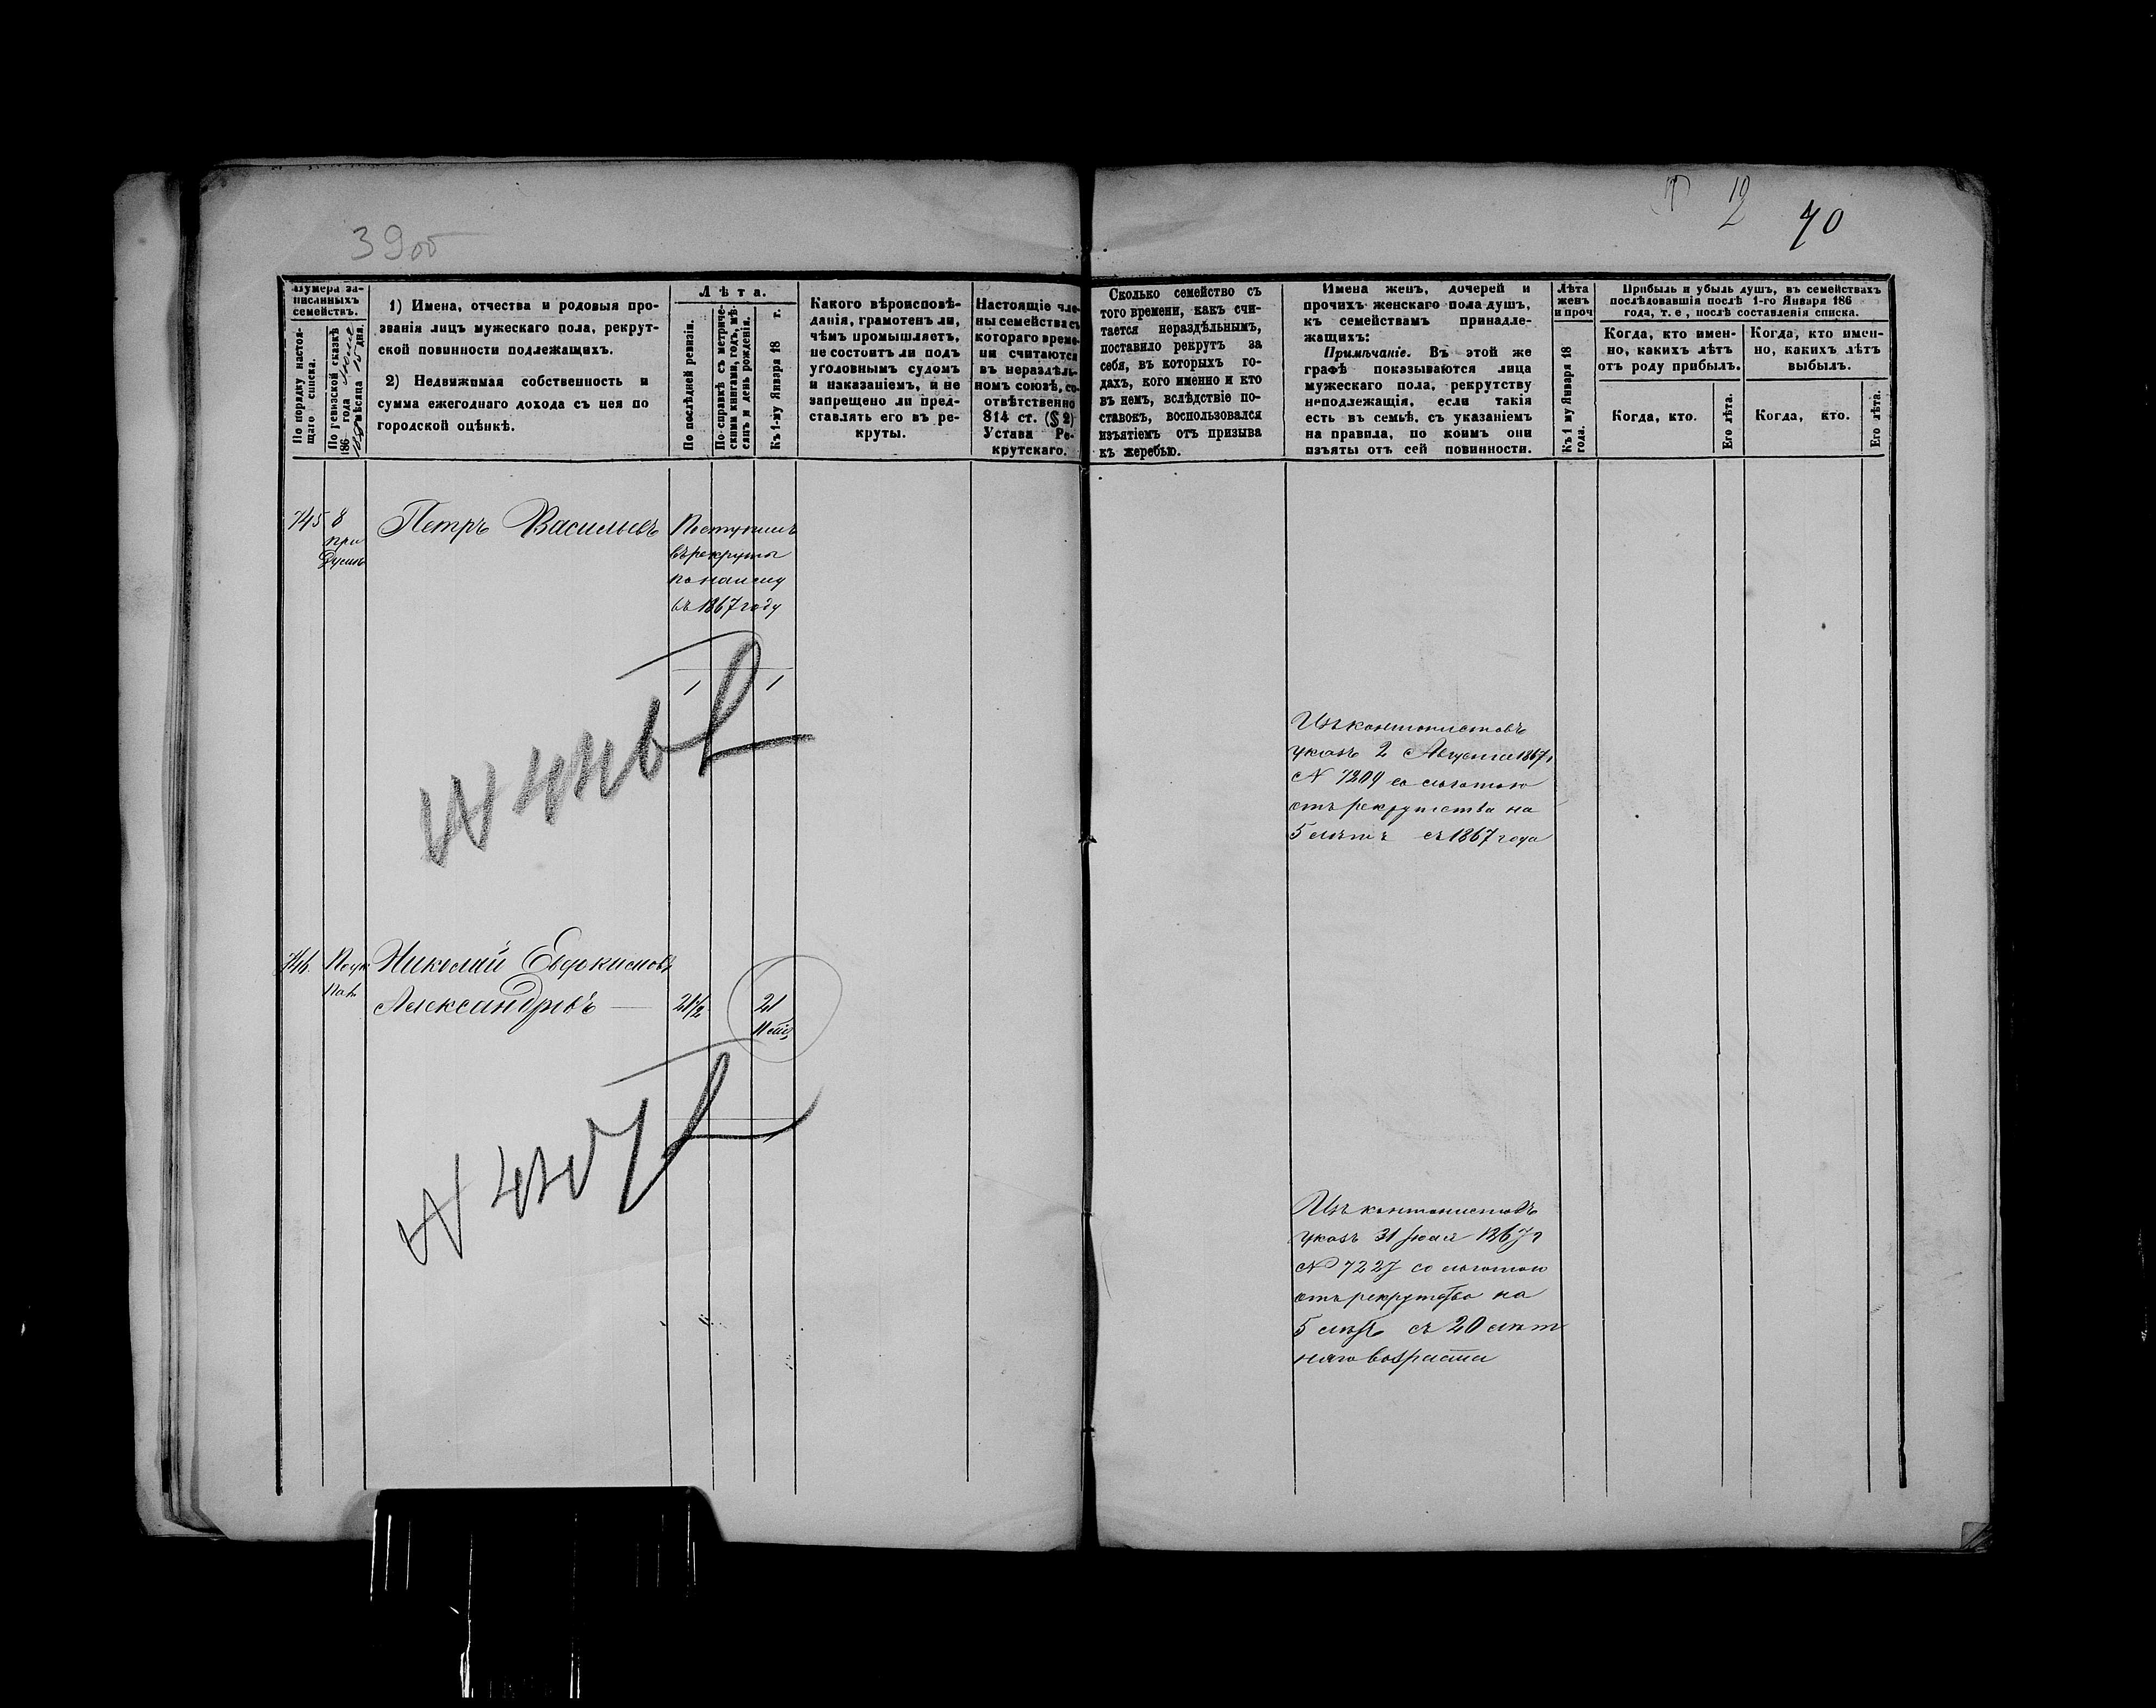 39 об
12
70
Нумера за-
писанныхъ
семействъ.
По порядку настоя-
щаго списка.
По ревизской сказкѣ
186 года
мѣсяца дня.
1) Имена, отчества и родовыя про-
званія лицъ мужескаго пола, рекрут-
ской повинности подлежащихъ.
2) Недвижимая собственность и
сумма ежегоднаго дохода съ нея по
городской оцѣнкѣ.
Лѣта.
По послѣдней ревизіи.
По справкѣ съ метриче-
скими книгами, годъ, мѣ-
сяцъ и день рожденія.
Къ 1-му Января 18 г.
Какого вѣроисповѣ-
данія, грамотенъ ли,
чѣмъ промышляетъ,
не состоитъ ли подъ
уголовнымъ судомъ
и наказаніемъ, и не
запрещено ли пред-
ставлять его въ ре-
круты.
Настоящіе чле-
ны семейства съ
котораго време-
ни считаются
въ нераздѣль-
номъ союзѣ, со-
отвѣтственно
814 ст. (§ 2)
Устава Ре-
крутскаго.
Сколько семейство съ
того времени, какъ счи-
тается нераздѣльнымъ,
поставило рекрутъ за
себя, въ которыхъ го-
дахъ, кого именно и кто
въ немъ, вслѣдствіе по-
ставокъ, воспользовался
изъятіемъ отъ призыва
къ жеребью.
Имена женъ, дочерей и
прочихъ женскаго пола душъ,
къ семействамъ принадле-
жащихъ:
Примѣчаніе. Въ этой же
графѣ показываются лица
мужескаго пола, рекрутству
неподлежащія, если такія
есть въ семьѣ, съ указаніемъ
на правила, по коимъ они
изъяты отъ сей повинности.
Лѣта
женъ
и проч
Къ 1 му Января 18
года.
Прибыль и убыль душъ, въ семействахъ
послѣдовавшія послѣ 1-го Января 186
года, т. е., послѣ составленія списка.
Когда, кто имен-
но, какихъ лѣтъ
отъ роду прибылъ.
Когда, кто.
Его лѣта.
Когда, кто имен-
но, какихъ лѣтъ
выбылъ.
Когда, кто.
Его лѣта.
745 8 Петръ Васильевъ Поступилъ
въ рекруты
по найму
въ 1867 году
1 1
Изъ кантонистовъ
указъ 2 Августа 1867 г
№ 7209 со льготою
отъ рекрутства на
5 лѣтъ съ 1867 года
746. Николай Евдокимовъ
Александровъ — 21 1/2 21
Изъ кантонистовъ
указъ 31 Іюля 1867 г
№ 7227 со льготою
отъ рекрутства на
5 лѣтъ съ 20 лѣт
няго возраста